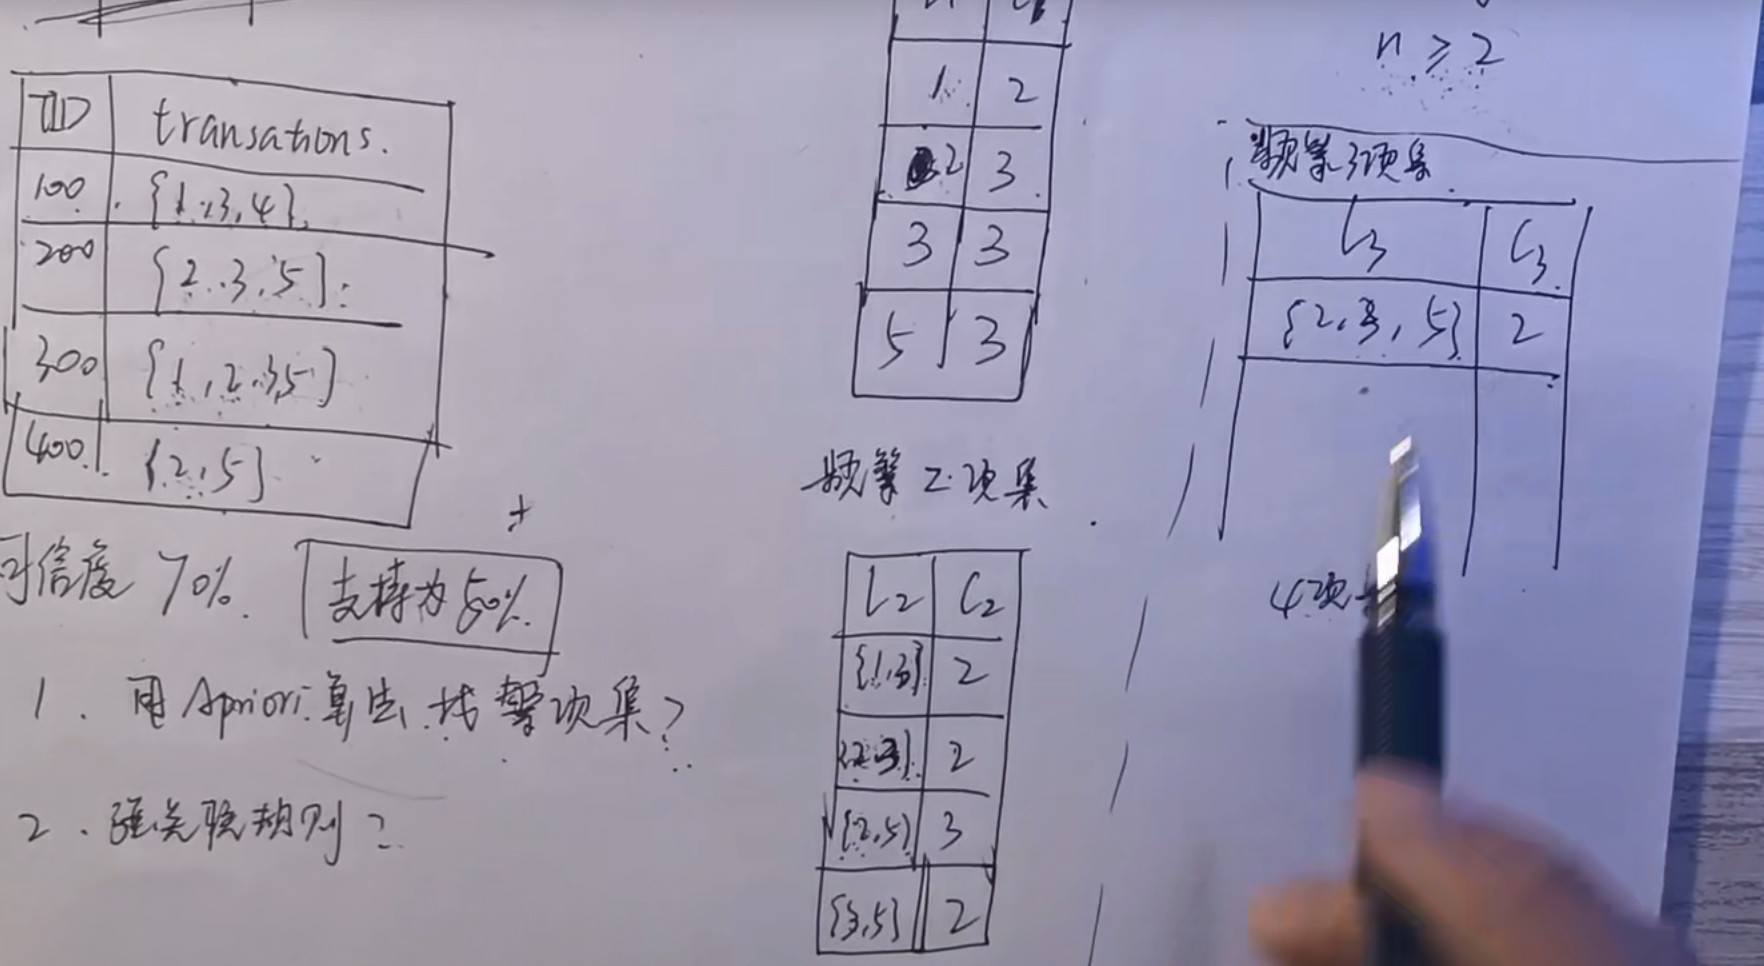 TID transations.
100 {1.3,4}
200 {2.3,5}
300 {1,2.3,5}
400 {2,5}
可信度 70%. 支持为50%.
1. 用Apriori算法.找繁项集?
2. 强关联规则?
1 2
2 3
3 3
5 3
频繁2项集
L2 C2
{1,3} 2
{2,3} 2
{2,5} 3
{3,5} 2
n ≥ 2
频繁3项集
L3 C3
{2,3,5} 2
4项